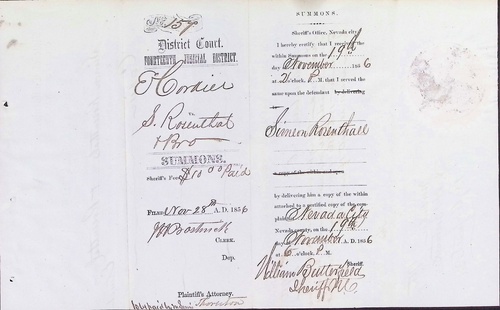 No 159
District Court.
FOURTEENTH JUDICIAL DISTRICT.
E Cordier
vs.
S. Rosenthal
& Bro
SUMMONS.
Sheriff's Fees $10 00 Paid
FILED Nov 28th A. D. 1856
CLERK.
Dep.
Plaintiff's Attorney.
SUMMONS.
Sheriff's Office, Nevada city
I hereby certify that I received the
within Summons on the 19th
day November 1856
at 2 o'clock P. M. that I served the
same upon the defendant by delivering
Simeon Rosenthall
a copy of the within
by delivering him a copy of the within
attached to a certified copy of the com-
plaint Nevada City
Nevada county, on the 19th
November A. D. 1856
at 6 o'clock, P. M.
William Butterfield Sheriff.
Sheriff N.C.